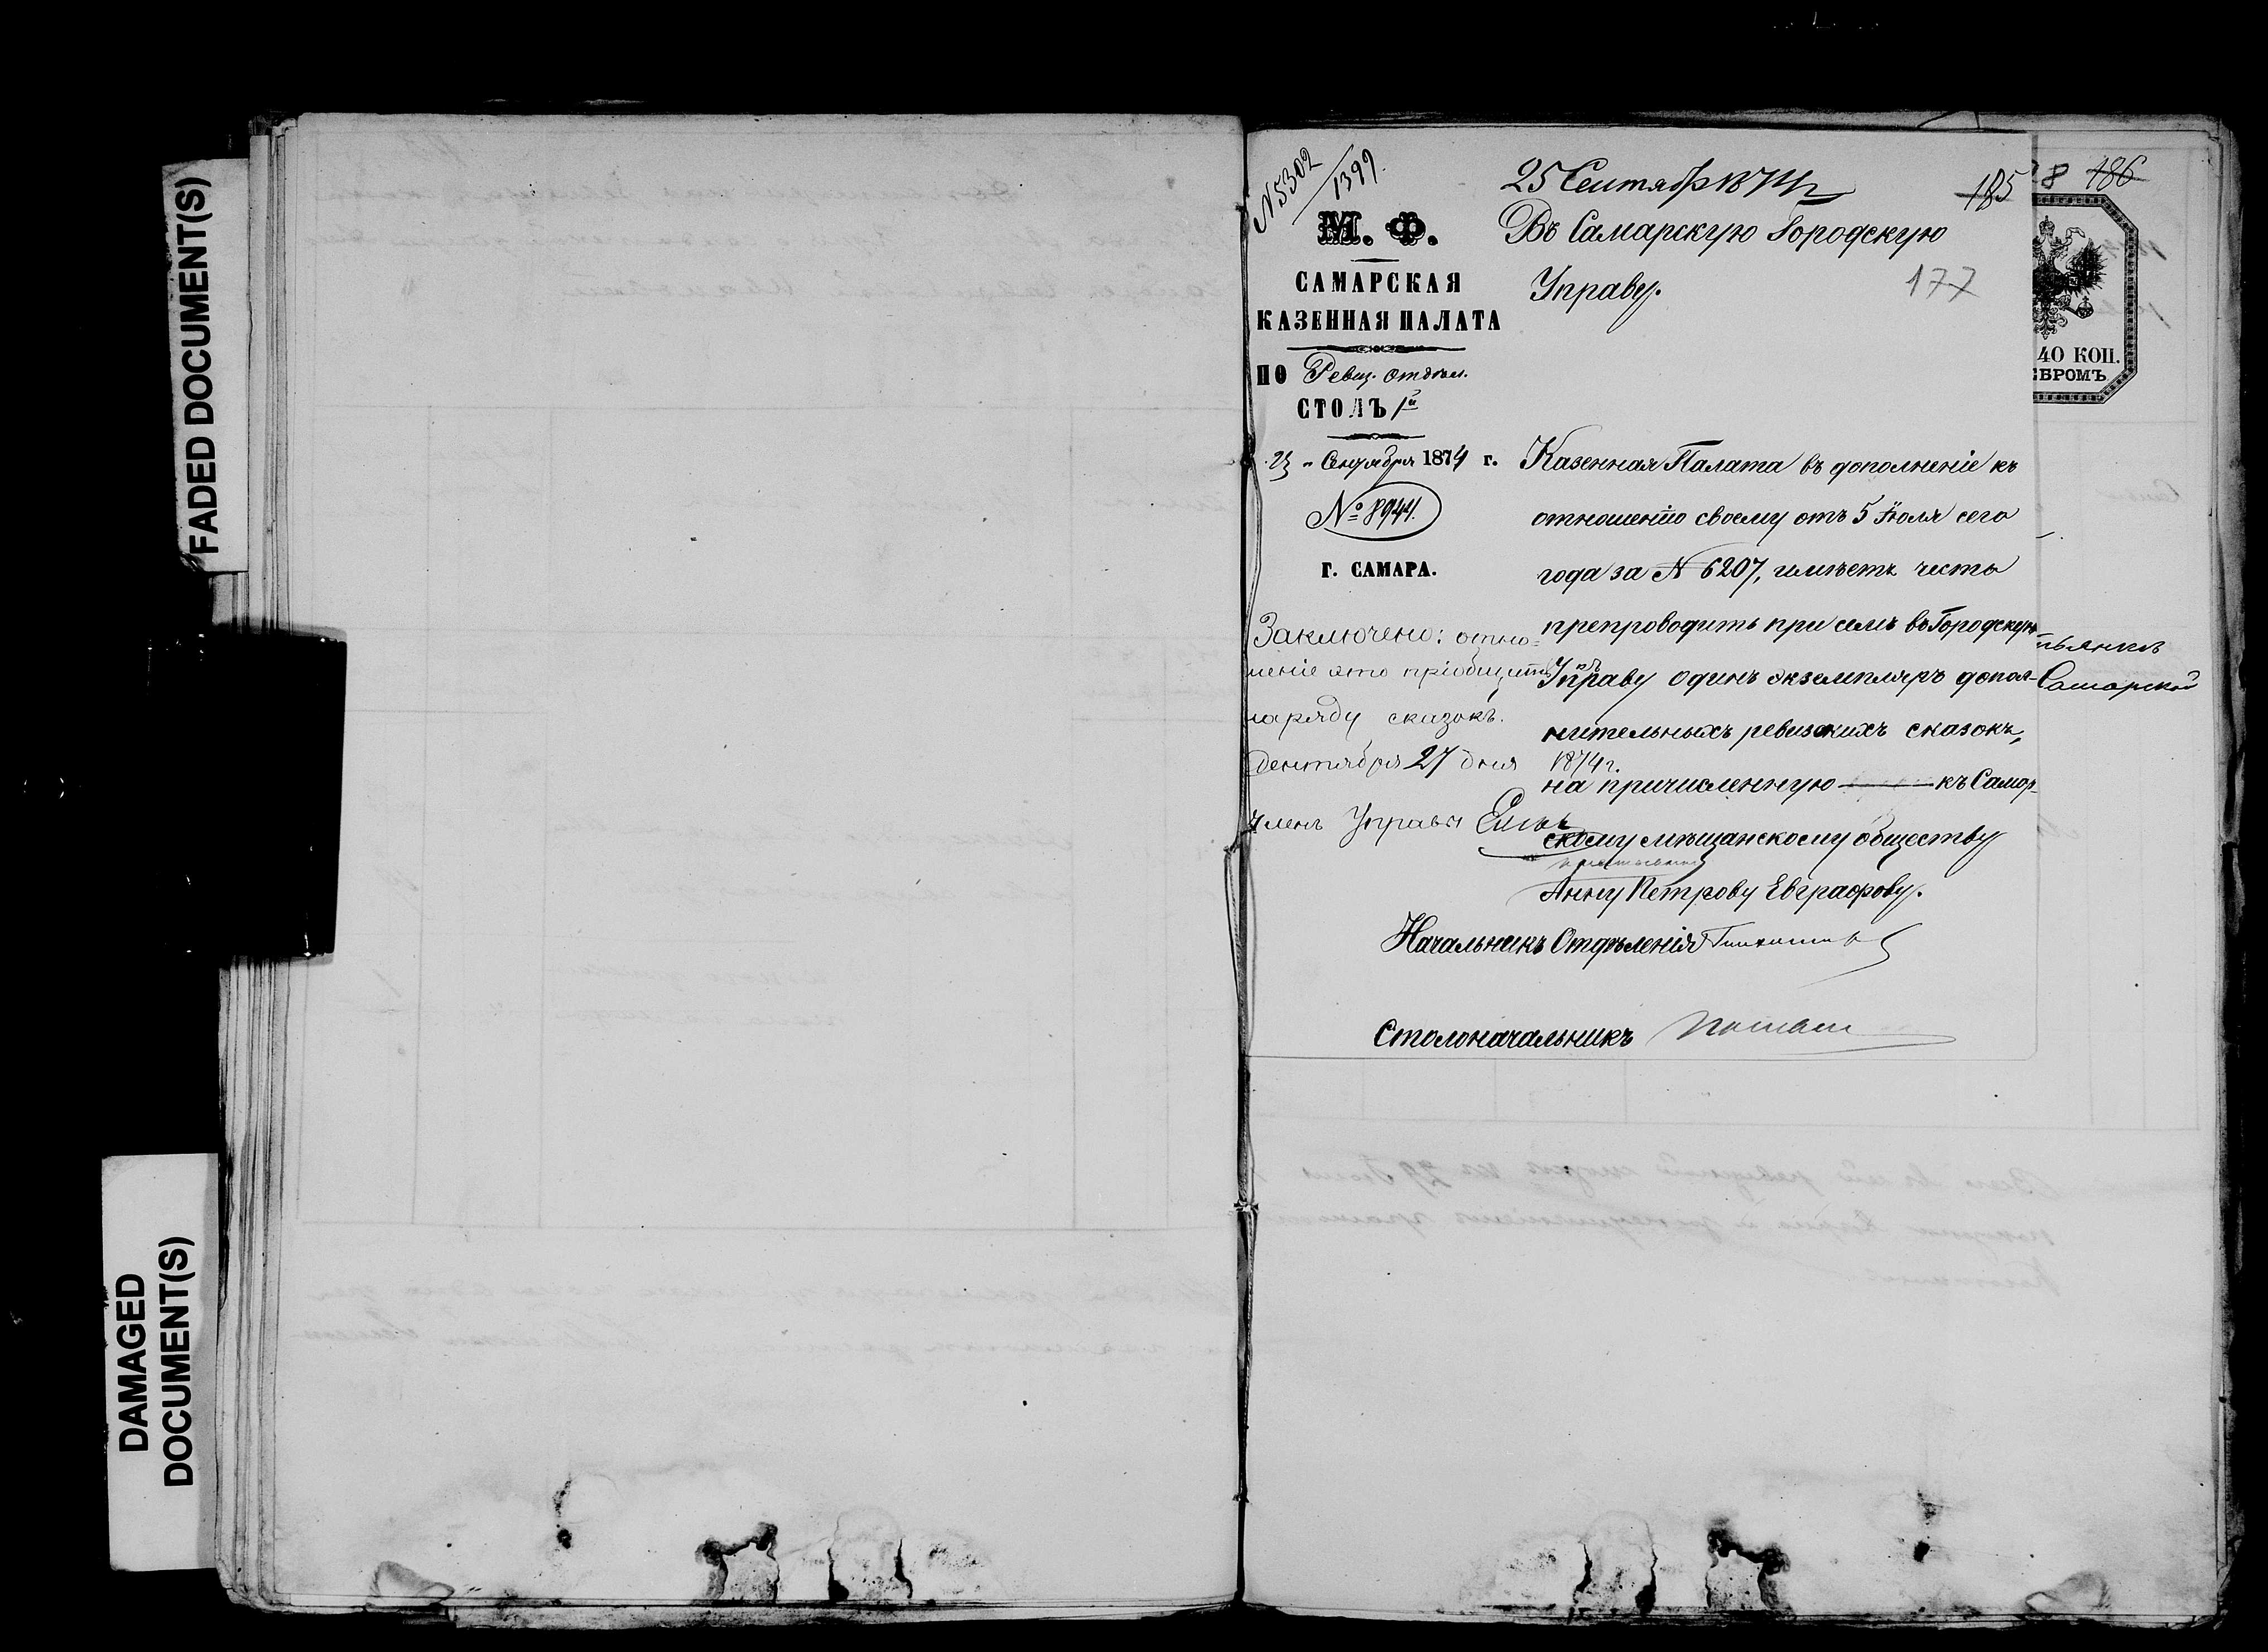 FADED DOCUMENT(S)
DAMAGED
DOCUMENT(S)
N 5302
1399.
25 Сентября 1874 г
185
8 186
М. Ф.
САМАРСКАЯ
КАЗЕННАЯ ПАЛАТА
ПО Ревиз. отдѣл.
СТОЛЪ 1й
23 " Сентября 1874 г.
№ 8944.
Г. САМАРА.
Въ Самарскую Городскую
Управу.
177
40 КОП.
ЕБРОМЪ
Казенная Палата въ дополненіе къ
отношенію своему отъ 5 Іюля сего
года за N 6207, имѣетъ честь
препроводить при семъ въ Городскую
Управу одинъ экземпляръ допол-
нительныхъ ревизскихъ сказокъ,
на причисленную къ Самар-
скому мѣщанскому обществу
Анну Петрову Евграфову.
Заключено: отно-
шеніе это пріобщить къ
наряду сказокъ.
Сентября 27 дня 1874 г.
Членъ Управы
Начальникъ Отдѣленія
Столоначальникъ
Самарской